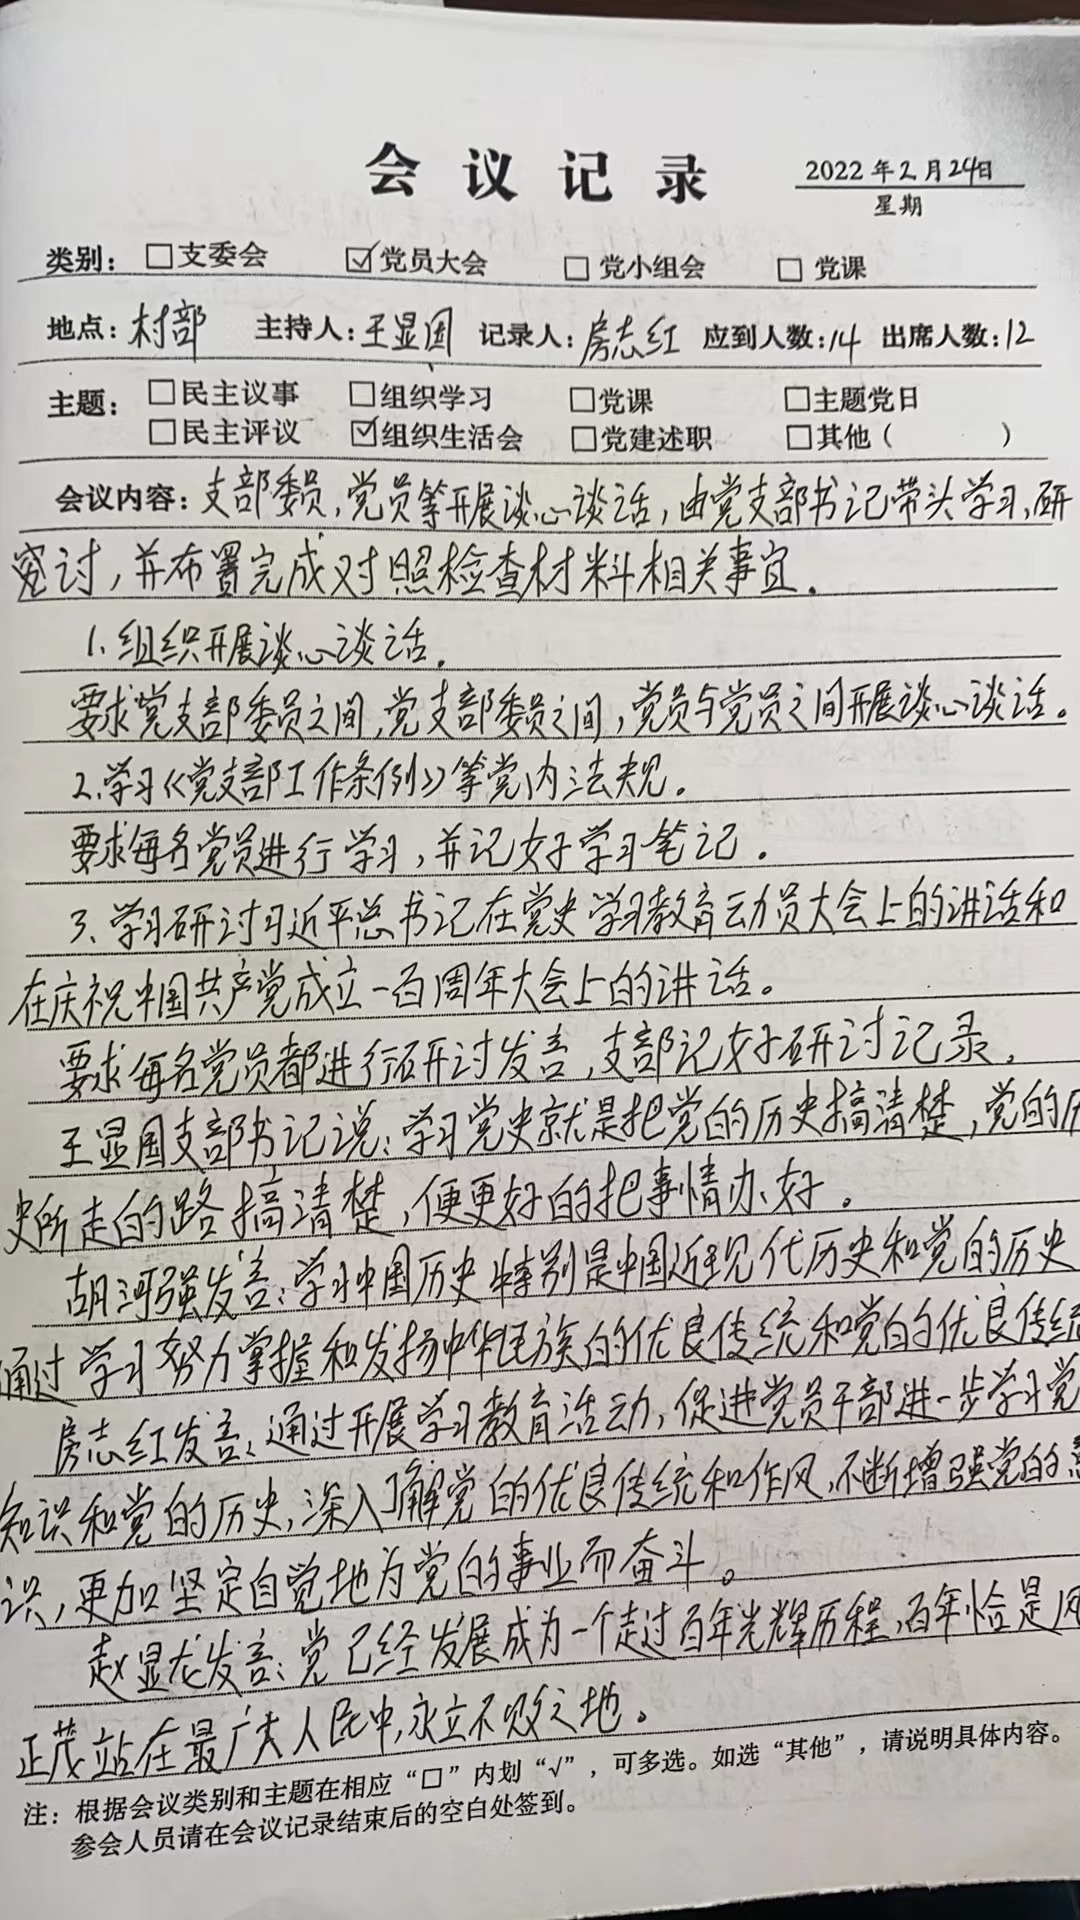 会议记录
2022年2月24日
星期
类别: □支委会 ☑党员大会 □党小组会 □党课
地点:村部 主持人:王显国 记录人:房志红 应到人数:14 出席人数:12
主题: □民主议事 □组织学习 □党课 □主题党日
□民主评议 ☑组织生活会 □党建述职 □其他( )
会议内容:支部委员,党员等开展谈心谈话,由党支部书记带头学习、研
讨,并布置完成对照检查材料相关事宜.
1、组织开展谈心谈话.
要求党支部委员之间,党支部委员之间,党员与党员之间开展谈心谈话。
2、学习《党支部工作条例》等党内法规.
要求每名党员进行学习,并记好学习笔记.
3、学习研讨习近平总书记在党史学习教育动员大会上的讲话和
在庆祝中国共产党成立一百周年大会上的讲话。
要求每名党员都进行研讨发言,支部记好研讨记录.
王显国支部书记说:学习党史就是把党的历史搞清楚,党的历
史所走的路搞清楚,便更好的把事情办好.
胡河强发言:学习中国历史特别是中国近现代历史和党的历史
通过学习努力掌握和发扬中华民族的优良传统和党的优良传统
房志红发言、通过开展学习教育活动,促进党员干部进一步学习党
知识和党的历史,深入了解党的优良传统和作风,不断增强党的意
识,更加坚定自觉地为党的事业而奋斗。
赵显龙发言:党已经发展成为一个走过百年光辉历程,百年恰是风
正茂站在最广大人民中,永立不败之地.
注: 根据会议类别和主题在相应“□”内划“√”,可多选。如选“其他”,请说明具体内容。
参会人员请在会议记录结束后的空白处签到。